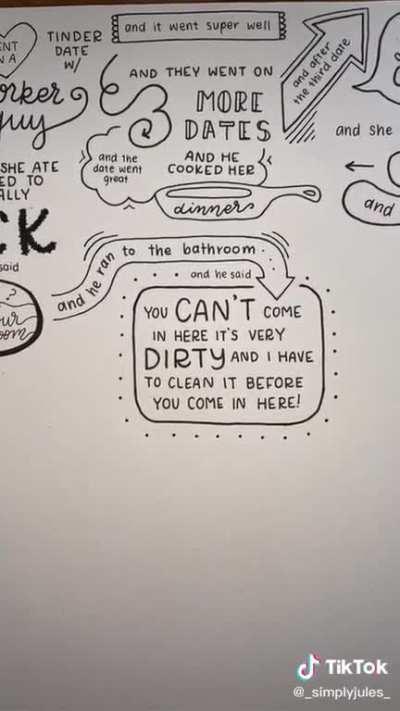 TINDER
DATE
W/
and it went super well
AND THEY WENT ON
3
MORE
DATES
and after
the third date
and she
SHE ATE
and the
date went
great
AND HE
COOKED HER
dinner
and
CK
said
and he ran to the bathroom
and he said
YOU CAN'T COME
IN HERE IT'S VERY
DIRTY AND I HAVE
TO CLEAN IT BEFORE
YOU COME IN HERE!
TikTok
@_simplyjules_